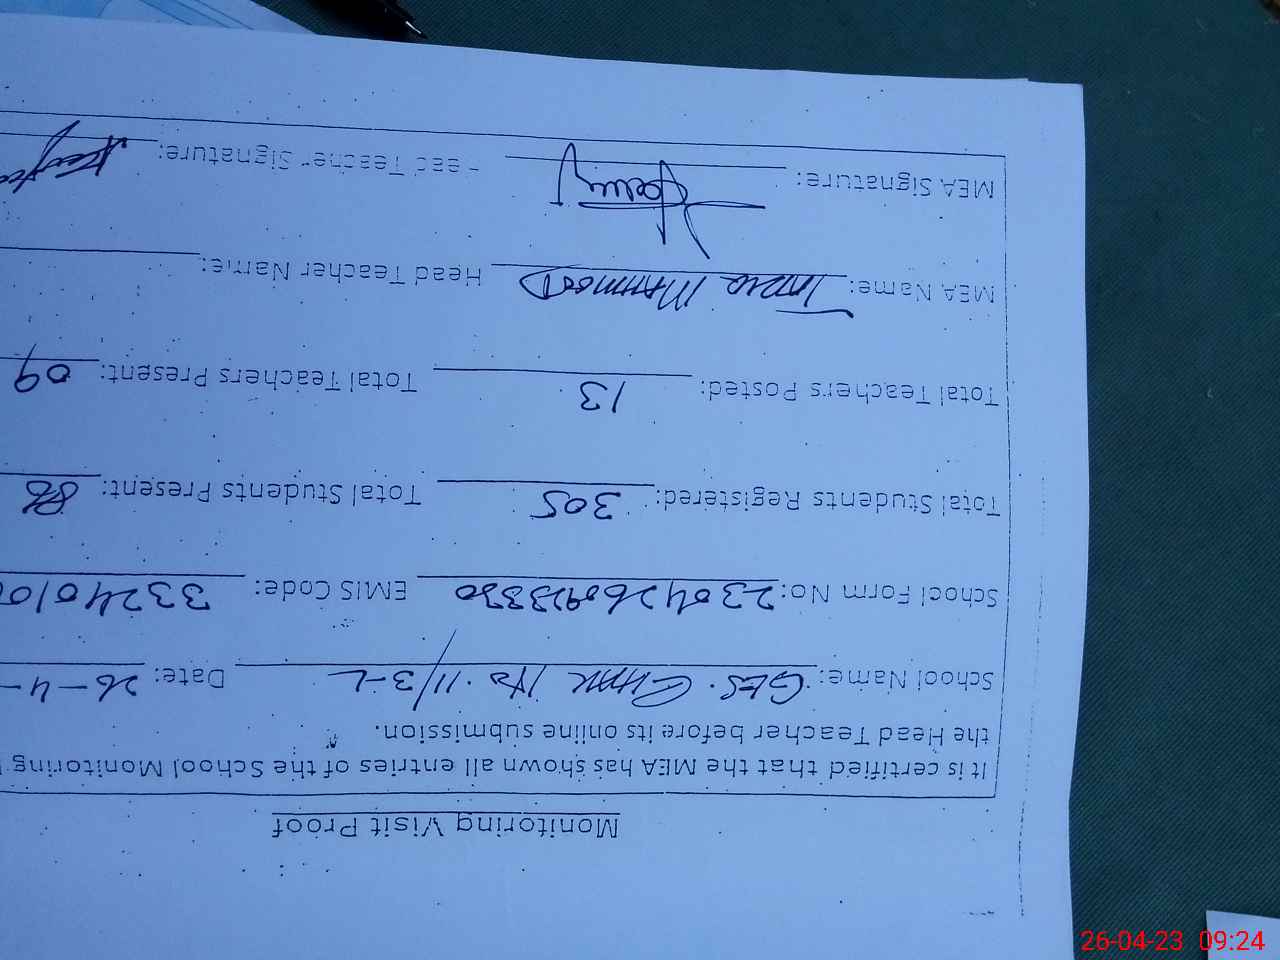 Monitoring Visit Proof
It is certified that the MEA has shown all entries of the School Monitoring
the Head Teacher before its online submission.
School Name: GES. Chak No. 11/3-L Date: 26-4-
School Form No: 230426092333 EMIS Code: 3324010
Total Students Registered: 305 Total Students Present: 86
Total Teachers Posted: 13 Total Teachers Present: 09
MEA Name: Mahmood Head Teacher Name:
MEA Signature: Head Teacher Signature:
26-04-23 09:24